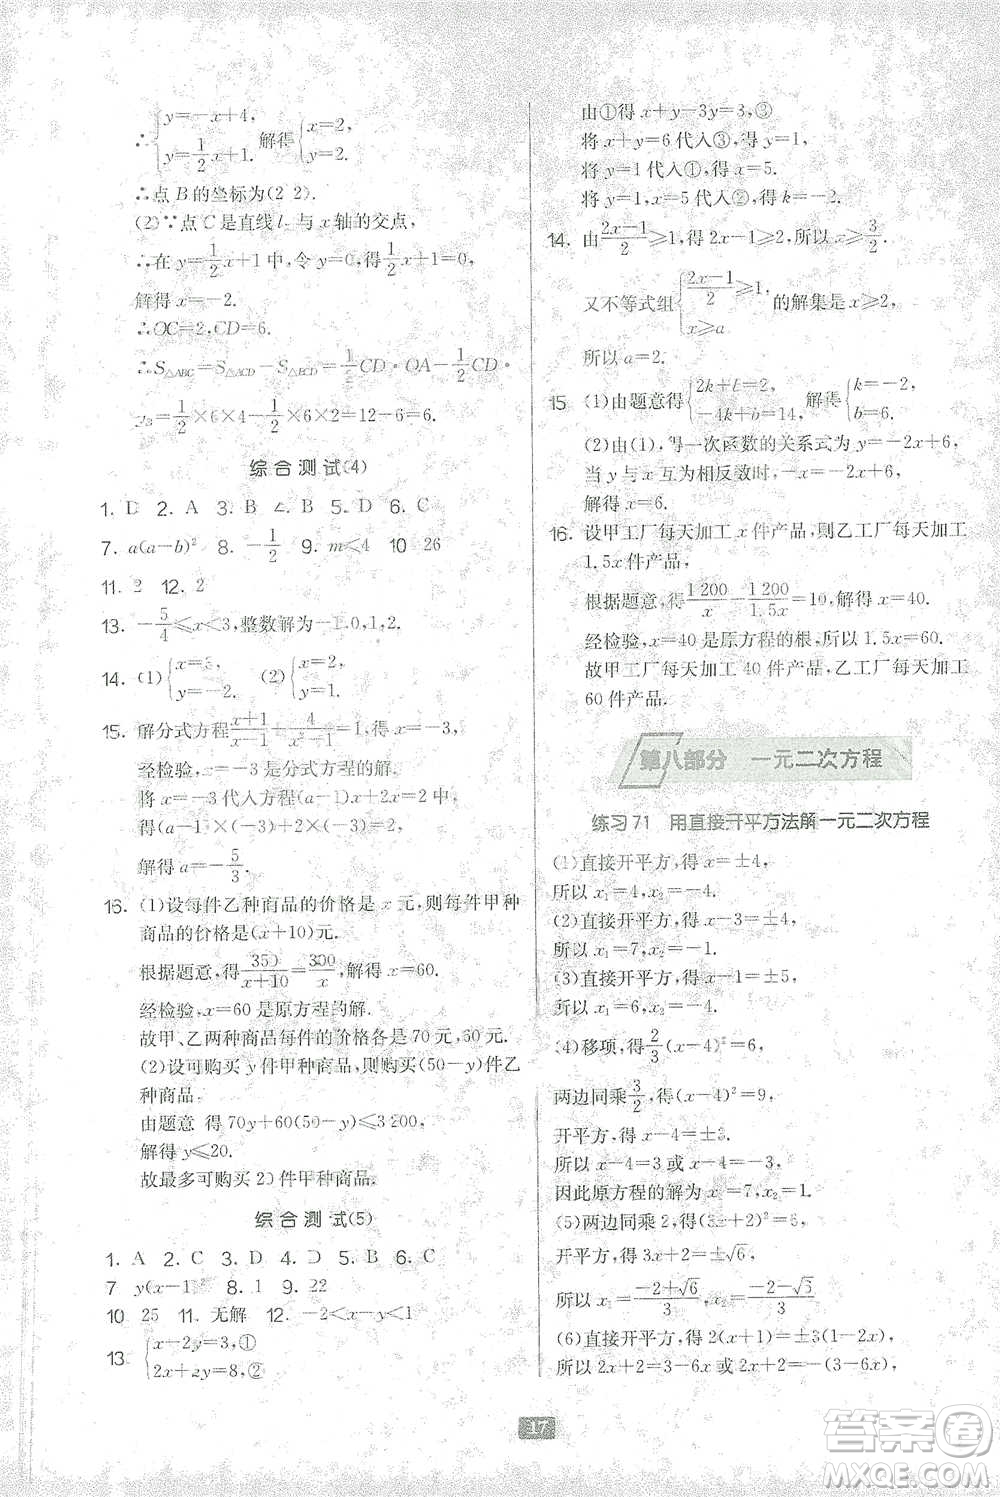 ∴{y=-x+4, y=1/2x+1. 解得{x=2, y=2.
∴点B的坐标为(2 2).
(2)∵点C是直线l 与x轴的交点,
∴在y=1/2x+1中,令y=0,得1/2x+1=0,
解得x=-2.
∴OC=2,CD=6.
∴S△ABC=S△ACD-S△BCD=1/2CD·OA-1/2CD·
=1/2×6×4-1/2×6×2=12-6=6.
综合测试(4)
1. D 2. A 3. B 4. B 5. D 6. C
7. a(a-b)² 8. -1/2 9. m<4 10 26
11. 2 12. 2
13. -5/4≤x<3,整数解为-1,0,1,2.
14. (1){x=3, y=-2. (2){x=1, y=2.
15. 解分式方程(x+1)/(x-1)+4/(x²-1)=1,得x=-3,
经检验,x=-3是分式方程的解.
将x=-3代入方程
得(a-1)×(-3)=8,
解得a=-5/3.
16. (1)设每件乙种商品的价格是x元,则每件甲种
商品的价格是(x+10)元.
根据题意,得350/(x+10)=300/x,解得x=60.
经检验,x=60是原方程的解.
故甲、乙两种商品每件的价格各是70元,60元.
(2)设可购买y件甲种商品,则购买(50-y)件乙
种商品.
由题意 得70y+60(50-y)≤3200,
解得y≤20.
故最多可购买20件甲种商品.
综合测试(5)
1. A 2. C 3. D 4. D 5. C 6. C
7 y(x-1)² 8. 1 9. 22
10 25 11. 无解 12. -2<x<1
13. {x-2y=3,① 2x+2y=8,②
由①得x+y-3y=3,③
将x+y=6代入③,得y=1,
将y=1代入①,得x=5.
将y=1,x=5代入②,得k=-2.
14. 由(2x-1)/2≥1,得2x-1≥2,所以x≥3/2.
又不等式组{(2x-1)/2≥1, x≥a 的解集是x≥2,
所以a=2.
15 (1)由题意得{2k+b=2, -4k+b=14, 解得{k=-2, b=6.
(2)由(1),得一次函数的关系式为y=-2x+6,
当y与x互为相反数时,-x=-2x+6,
解得x=6.
16. 设甲工厂每天加工x件产品,则乙工厂每天加工
1.5x件产品,
根据题意,得1200/x-1200/1.5x=10,解得x=40.
经检验,x=40是原方程的根,所以1.5x=60.
故甲工厂每天加工40件产品,乙工厂每天加工
60件产品.
第八部分 一元二次方程
练习71 用直接开平方法解一元二次方程
(1)直接开平方,得x=±4,
所以x₁=4,x₂=-4.
(2)直接开平方,得x-3=±4,
所以x₁=7,x₂=-1.
(3)直接开平方,得x-1=±5,
所以x₁=6,x₂=-4.
(4)移项,得2/3(x-4)²=6,
两边同乘3/2,得(x-4)²=9,
开平方,得x-4=±3.
所以x-4=3或x-4=-3.
因此原方程的解为x₁=7,x₂=1.
(5)两边同乘2,得(3x+2)²=6,
开平方,得3x+2=±√6,
所以x₁=(-2+√6)/3,x₂=(-2-√6)/3.
(6)直接开平方,得2(x+1)=±3(x-2),
所以2x+2=3x-6或2x+2=-3x+6,
17
答案圈
MXQE.COM